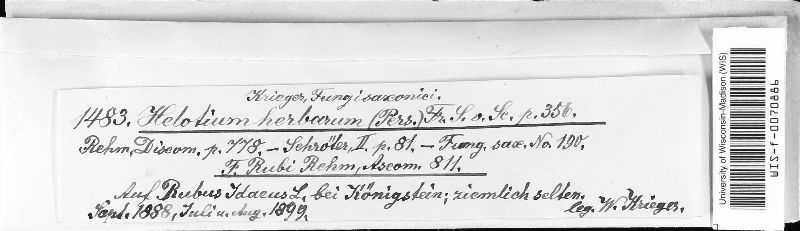 Krieger, Fungi saxonici.
1483. Helotium herbarum (Pers.) Fr. S. v. Sc. p. 356.
Rehm, Discom. p. 778. – Schröter, II. p. 81. – Fung. sax. No. 190.
F. Rubi Rehm, Ascom. 811.
Auf Rubus Idaeus L. bei Königstein; ziemlich selten.
Sept. 1888, Juli u. Aug. 1899.
leg. W. Krieger.
University of Wisconsin-Madison (WIS)
WIS-f-0070886